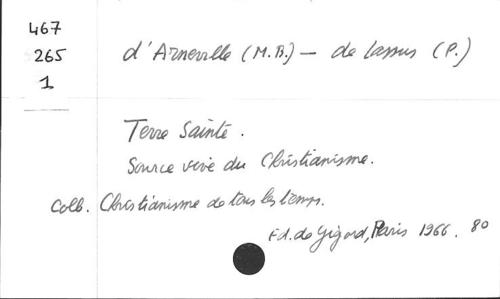 467
265
1
d'Arneville (M.B.) — de Lassus (P.)
Terre Sainte.
Source vive du Christianisme.
Coll. Christianisme de tous les temps.
Ed. de Gigord, Paris 1966. 80